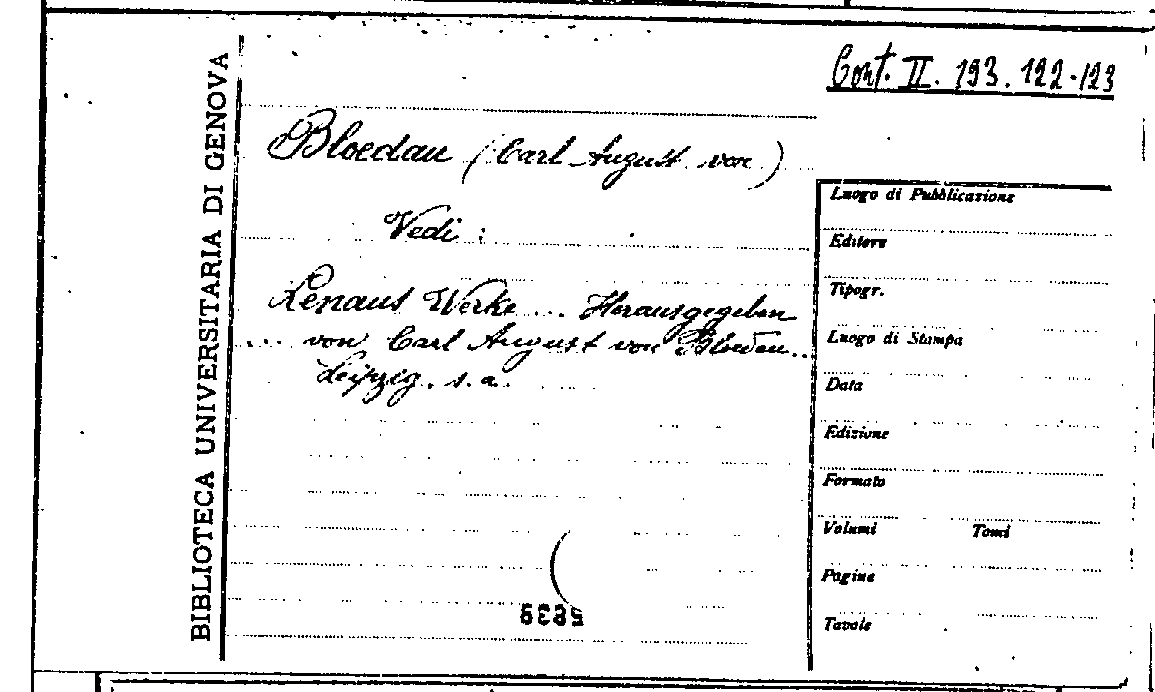 Cont. II. 193. 122-123
BIBLIOTECA UNIVERSITARIA DI GENOVA
Bloedau (Carl August von)
Vedi :
Lenaus Werke ... Herausgegeben
... von Carl August von Bloedau...
Leipzig. s.a.
Luogo di Pubblicazione
Editore
Tipogr.
Luogo di Stampa
Data
Edizione
Formato
Volumi Tomi
Pagine
Tavole